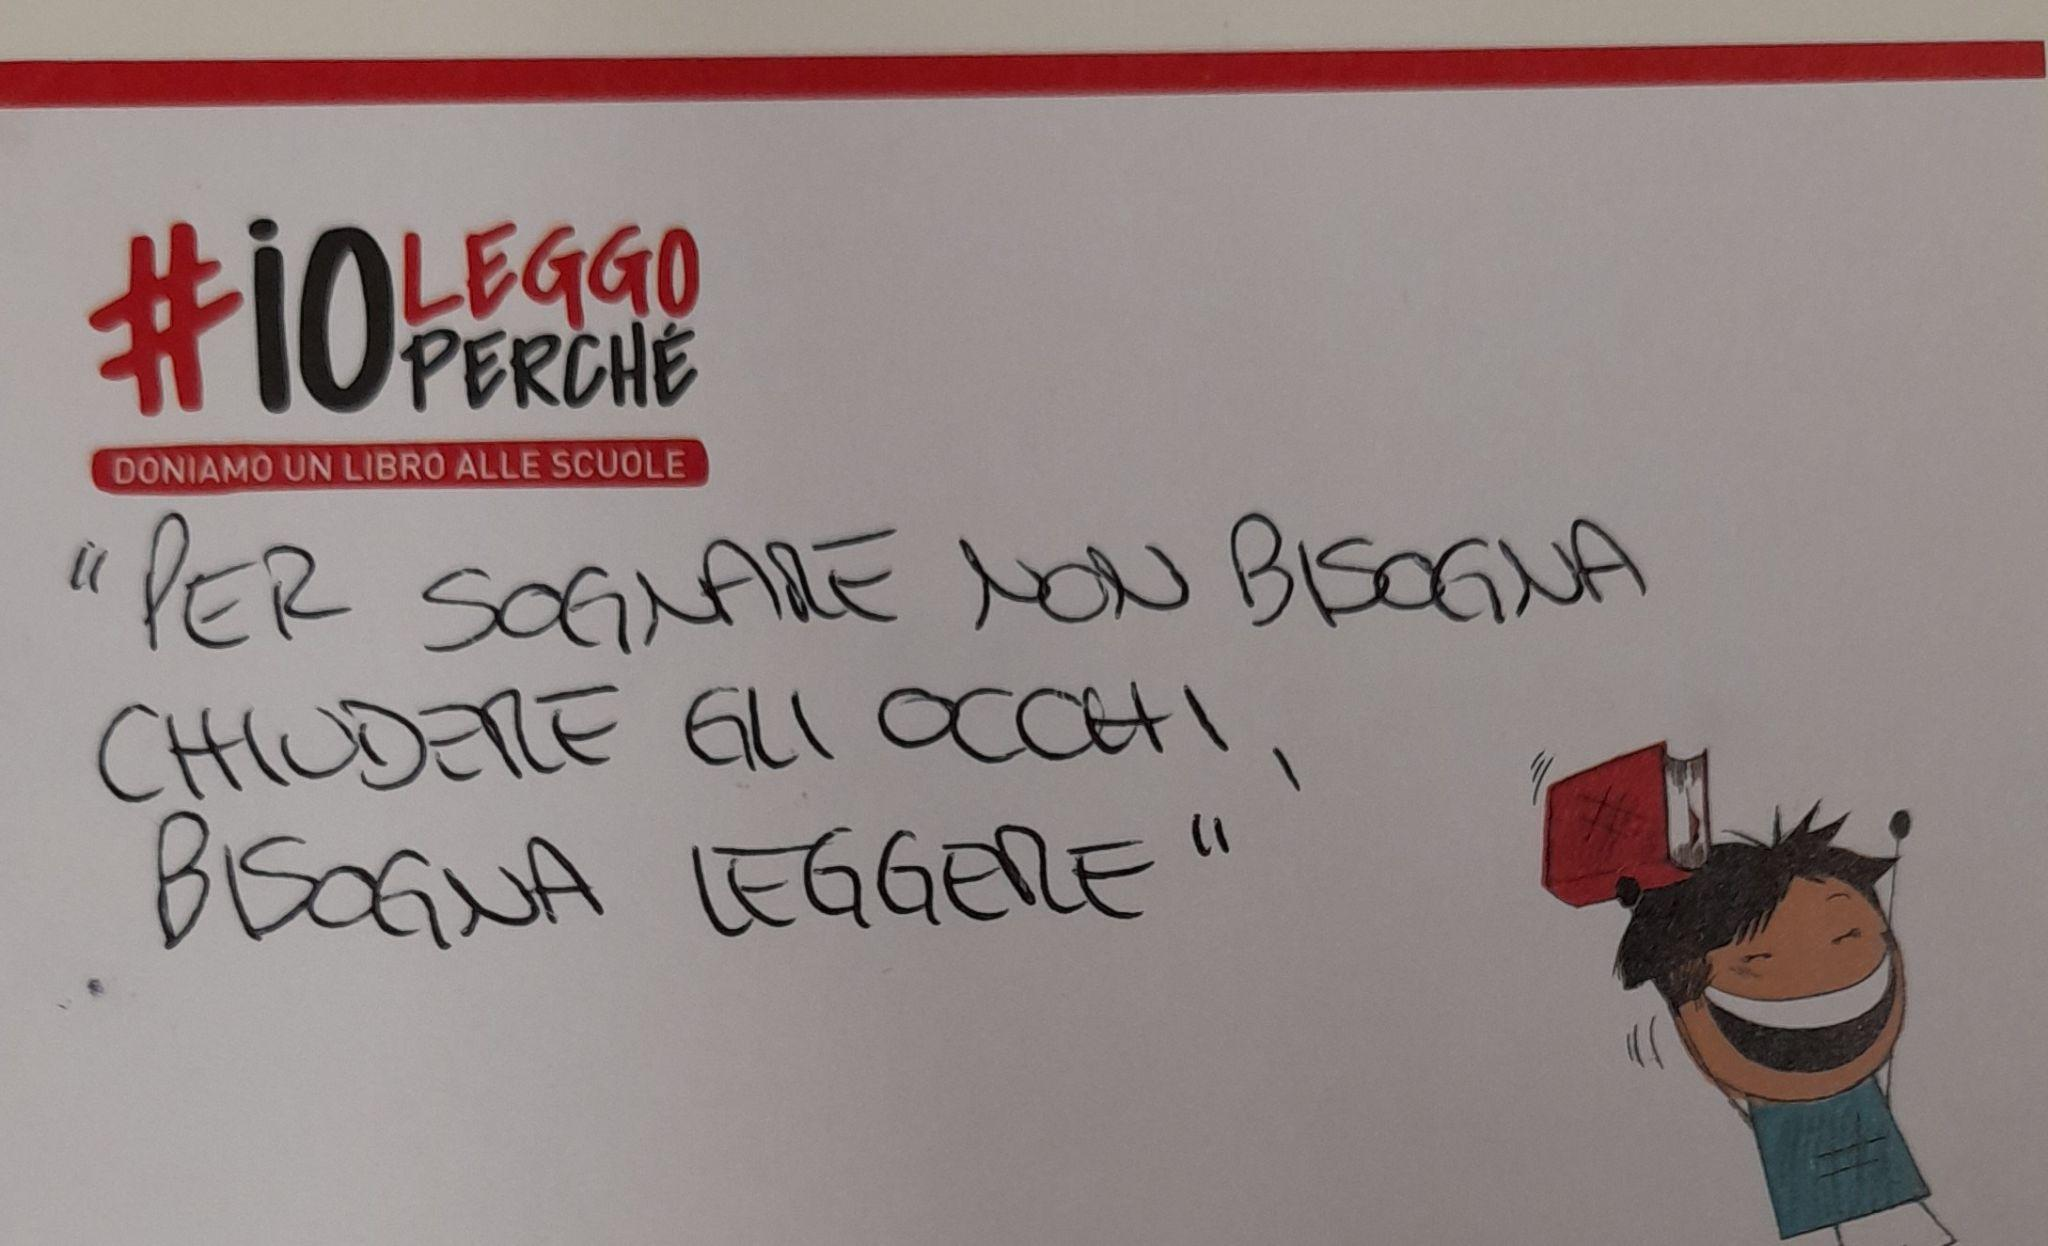 #iO LEGGO
PERCHÉ
DONIAMO UN LIBRO ALLE SCUOLE
"PER SOGNARE NON BISOGNA
CHIUDERE GLI OCCHI,
BISOGNA LEGGERE"